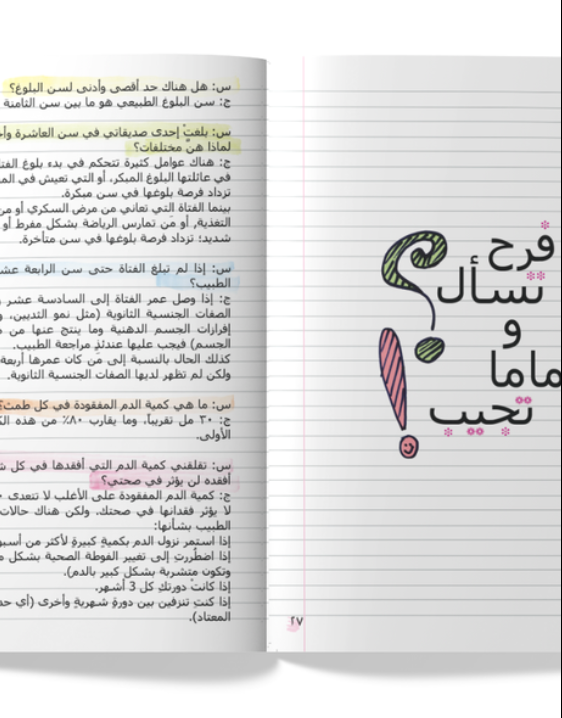 فرح
تسأل
و
ماما
تجيب
؟!
٢٧
س: هل هناك حد أقصى وأدنى لسن البلوغ؟
ج: سن البلوغ الطبيعي هو ما بين سن الثامنة
س: بلغتْ إحدى صديقاتي في سن العاشرة
لماذا هنّ مختلفات؟
ج: هناك عوامل كثيرة تتحكم في بدء بلوغ
في عائلتها البلوغ المبكر، أو التي تعيش في
تزداد فرصة بلوغها في سن مبكرة.
بينما الفتاة التي تعاني من مرض السكري أو
التغذية، أو مَن تمارس الرياضة بشكل مفرط أو
شديد؛ تزداد فرصة بلوغها في سن متأخرة.
س: إذا لم تبلغ الفتاة حتى سن الرابعة
الطبيب؟
ج: إذا وصل عمر الفتاة إلى السادسة عشر
الصفات الجنسية الثانوية (مثل نمو الثديين،
إفرازات الجسم الدهنية وما ينتج عنها من
الجسم) فيجب عليها عندئذٍ مراجعة الطبيب.
كذلك الحال بالنسبة إلى مَن كان عمرها أربعة
ولكن لم تظهر لديها الصفات الجنسية الثانوية.
س: ما هي كمية الدم المفقودة في كل طمث؟
ج: ٣٠ مل تقريباً، وما يقارب ٨٠٪ من هذه
الأولى.
س: تقلقني كمية الدم التي أفقدها في كل
أفقده لن يؤثر في صحتي؟
ج: كمية الدم المفقودة على الأغلب لا تتعدى
لا يؤثر فقدانها في صحتك، ولكن هناك حالات
الطبيب بشأنها:
إذا استمر نزول الدم بكميةٍ كبيرةٍ لأكثر من
إذا اضطُررتِ إلى تغيير الفوطة الصحية بشكل
وتكون متشربة بشكل كبير بالدم).
إذا كانتْ دورتكِ كل 3 أشهر.
إذا كنتِ تنزفين بين دورةٍ شهريةٍ وأخرى (أي
المعتاد).